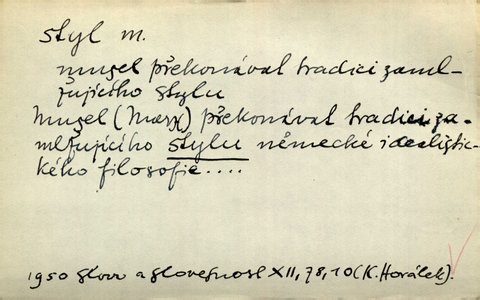 styl m.
musel překonávat tradici zaml-
žujícího stylu
Musel (Marx) překonávat tradici za-
mlžujícího stylu německé idealistic-
kého filosofie....
1950 Slovo a slovesnost XII, 78, 10 (K. Horálek).